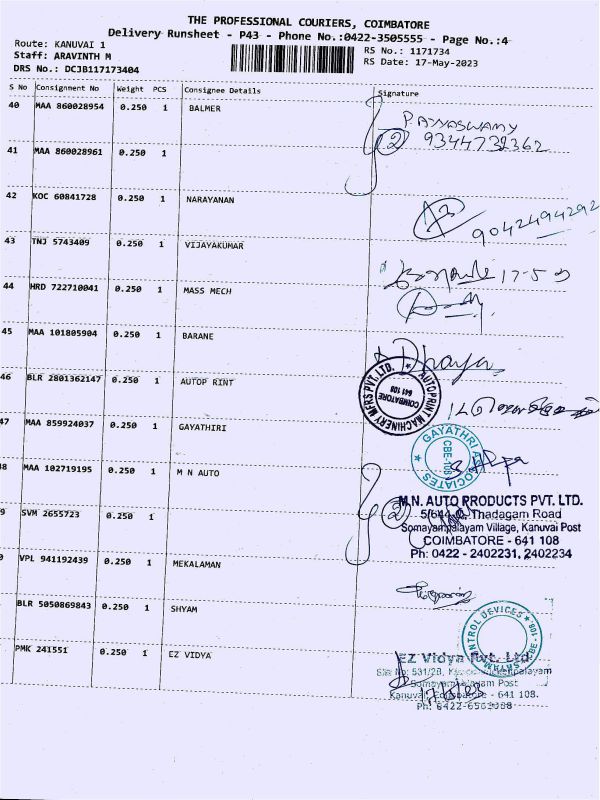 THE PROFESSIONAL COURIERS, COIMBATORE
Delivery Runsheet - P43 - Phone No.:0422-3505555 - Page No.:4
Route: KANUVAI 1
RS No.: 1171734
Staff: ARAVINTH M
RS Date: 17-May-2023
DRS No.: DCJB117173404
S No Consignment No Weight PCS Consignee Details Signature
40 MAA 860028954 0.250 1 BALMER
P. AYYASWAMY
2 9344732362
41 MAA 860028961 0.250 1
42 KOC 60841728 0.250 1 NARAYANAN
9042494292
43 TNJ 5743409 0.250 1 VIJAYAKUMAR
17-5
44 HRD 722710041 0.250 1 MASS MECH
45 MAA 101805904 0.250 1 BARANE
Dhaya
46 BLR 2801362147 0.250 1 AUTOP RINT
AUTOPRINT MACHINERY MFRS PVT. LTD.
COIMBATORE
641 108
47 MAA 859924037 0.250 1 GAYATHIRI
GAYATHRI ASSOCIATES
CBE-108
8 MAA 102719195 0.250 1 M N AUTO
2
M.N. AUTO PRODUCTS PVT. LTD.
Thadagam Road
Somayampalayam Village, Kanuvai Post
COIMBATORE - 641 108
Ph: 0422 - 2402231, 2402234
9 SVM 2655723 0.250 1
0 VPL 941192439 0.250 1 MEKALAMAN
BLR 5050869843 0.250 1 SHYAM
CONTROL DEVICES
PMK 241551 0.250 1 EZ VIDYA
EZ Vidya Pvt. Ltd.
Site No: 531/2B,
Somayampalayam Post
Kanuvai, Coimbatore - 641 108.